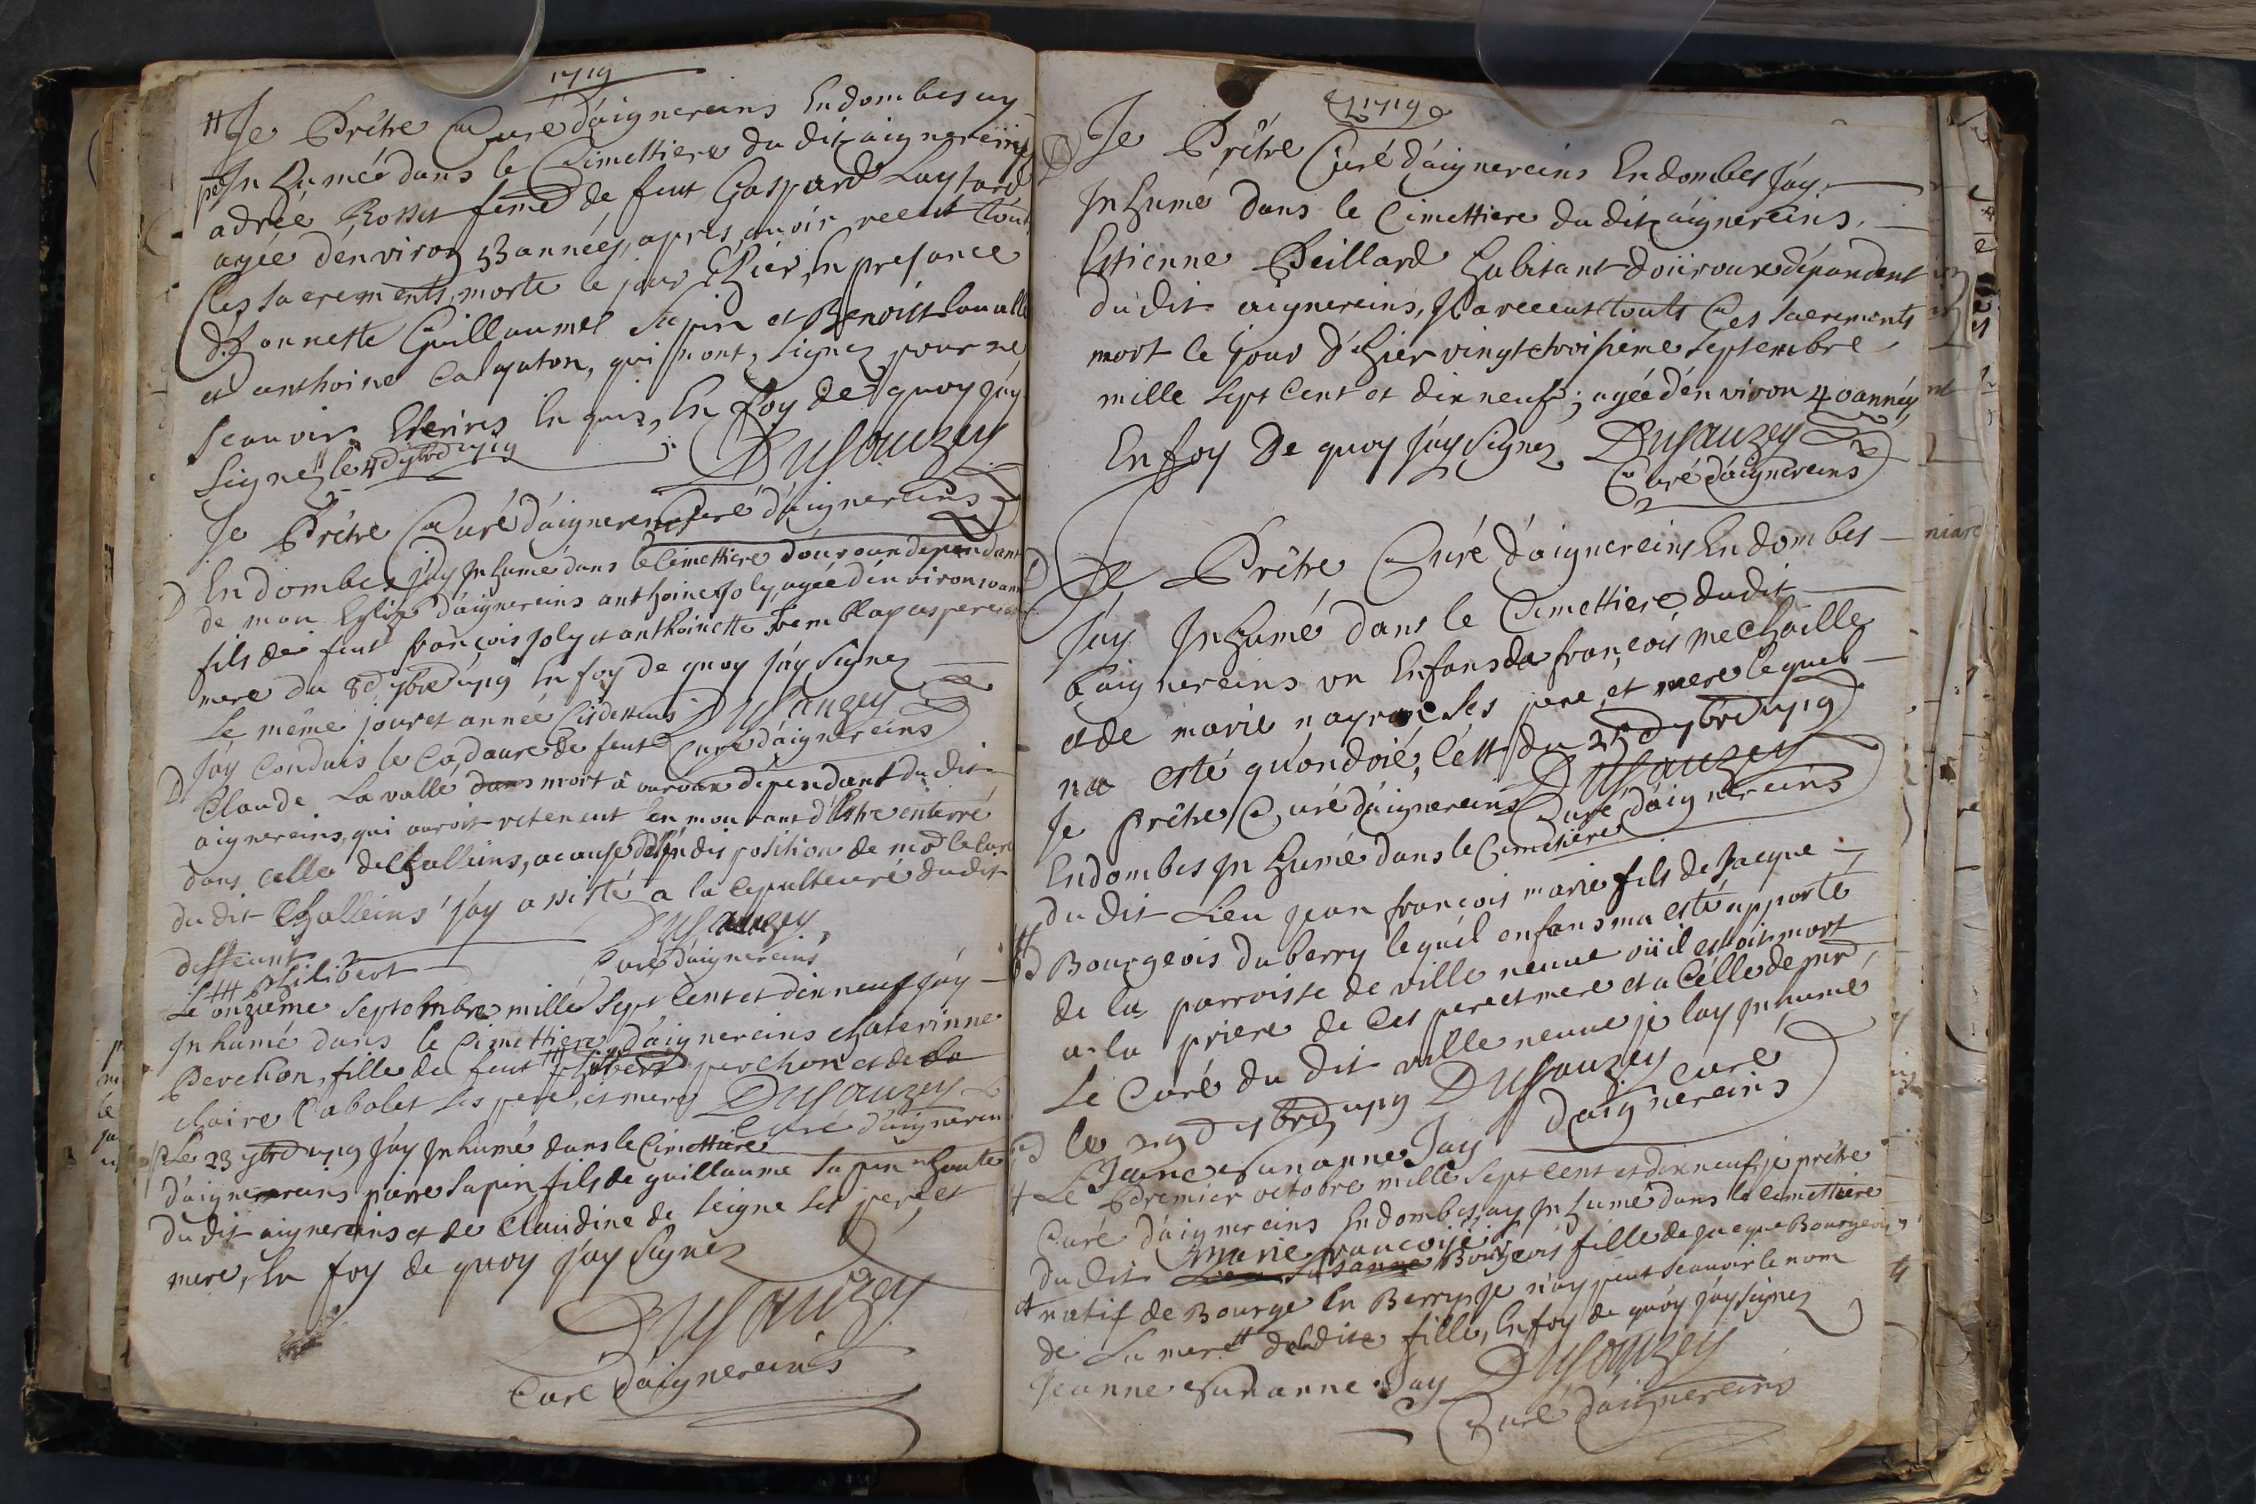 1719
Je Prêtre Curé d'aignereins En dombes ay
Inhumée dans le Cimettiere du dit aignereins
adrée Rosset feme de feut Gaspard
agée d'environ 53 années, apres avoir receut touts
Ces sacrements, morte le jour d'hier En presance
d'honneste Guillaumes Sapin et Benoist Lavalle
et anthoine Calyaton, qui n'ont signez pour ne
scauoir Ecrires En foy de quoy j'ay
Signez le 4d 7bre 1719 DuSauzey
Je Prêtre Curé d'aignereins Curé d'aignereins
En dombes j'ay Inhumé dans le Cimettiere d'ouroux dependant
de mon Eglize d'aignereins anthoine Joly, agée d'environ
fils de feut françois Joly et anthoinette ses pere et
mere du 8d 7bre 1719 En foy de quoy j'ay Signez
Le même jour et année Cÿ dessus DuSauzey
J'ay Conduis le Cadavre de feut Curé d'aignereins
Claude Lavalle dans mort à ouroux dependant du dit
aignereins, qui auroit reteneut En mourant d'Estre enterré
dans celle de Challeins, a cause de l'Indisposition de mr le Curé
du dit Challeins j'ay assisté a la sepulteure du dit
deffeunt DuSauzey
philibert Curé d'aignereins
Le onzieme Septembre mille Sept Cent et dix neuf j'ay
Inhumé dans le Cimettiere d'aignereins Chaterinne
Perchon, fille de feut philibert perchon et de la
claire Cabolet ses pere, et mere DuSauzey
Curé d'aignereins
Le 23 7bre 1719 j'ay Inhumé dans le Cimettiere
d'aignereins pierre Sapin fils de guillaume Sapin
du dit aignereins et de Claudine de Seigne ses pere, et
mere, En foy de quoy j'ay Signez
DuSauzey
Curé d'aignereins
1719
Je Prêtre Curé d'aignereins En dombes j'ay
Inhumé dans le Cimettiere du dit aignereins,
Estienne Peillard habitant d'oüroux dépendent
du dit aignereins, Il a receut touts Ces Sacrements
mort le jour d'hier vingt troisieme Septembre
mille Sept Cent et dix neuf; agée d'environ 40 années
En foy De quoy j'ay Signez DuSauzey
Curé d'aignereins
Je Prêtre Curé d'aignereins En dombes
j'ay Inhumé dans le Cimettiere du dit
d'aignereins un Enfans de françois Mechaille
et de marie ses pere, et mere lequel
na esté qu'ondoié, C'ett du 25d 7bre 1719
DuSauzey
Je prêtre Curé d'aignereins Curé d'aignereins
En dombes Inhumé dans le Cimettiere
du dit Lieu jean françois marie fils de Jacque
Bourgeois du berry lequel enfans ma esté apporté
de la parroisse de ville neuve où il estoit mort
a la priere de Ces pere et mere et a Celle de mr
Le Curé du dit ville neuve je lay Inhumé
le 29d 7bre 1719 DuSauzey curé
Jeanne Susanne Jay d'aignereins
Le Premier octobre mille Sept Cent et dix neuf je prêtre
Curé d'aignereins En dombes ay Inhumé dans le Cimettiere
marie francoise
du dit Susanne Bourgeois fille de Jacque Bourgeois
natif de Bourge En Berry, Je n'ay peut Scauoir le nom
de La mere deladite fille, En foy de quoy j'ay Signez
Jeanne Susanne Jay DuSauzey
Curé d'aignereins